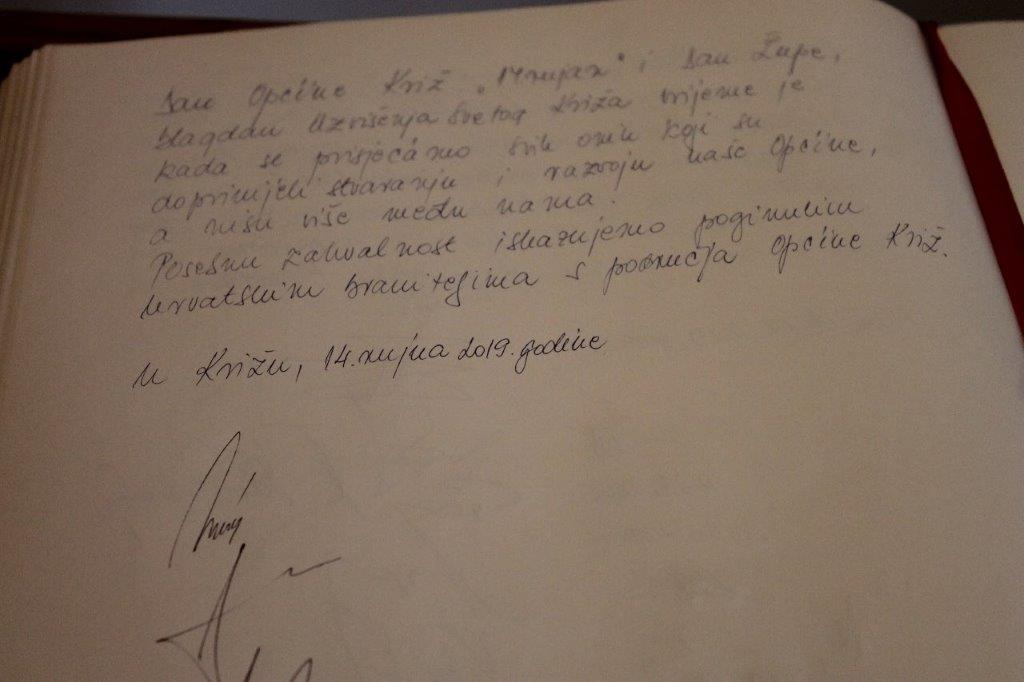 Dan Općine Križ „14. rujan" i Dan Župe,
blagdan Uzvišenja Svetog Križa vrijeme je
kada se prisjećamo svih onih koji su
doprinijeli stvaranju i razvoju naše Općine,
a nisu više među nama.
Posebnu zahvalnost iskazujemo poginulim
hrvatskim braniteljima s područja Općine Križ.
U Križu, 14. rujna 2019. godine